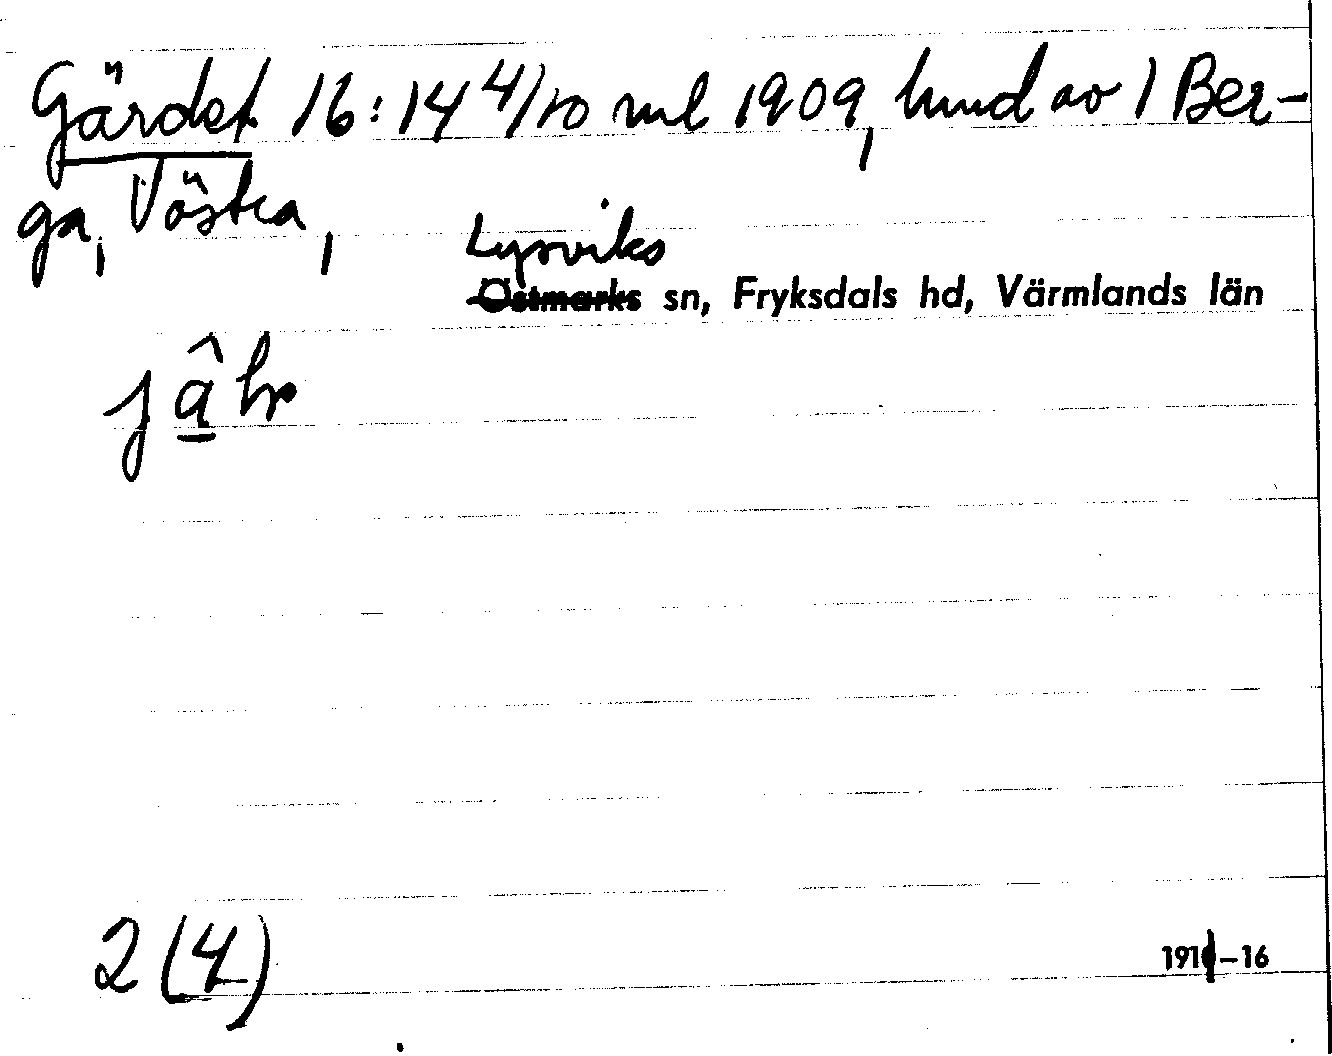 Gärdet 16:14 4/10 ml 1909, hmd av 1 Ber-
ga, Västra,
Lysviks
Östmarks sn, Fryksdals hd, Värmlands län
jâ̱hr
2 (4)
1911-16